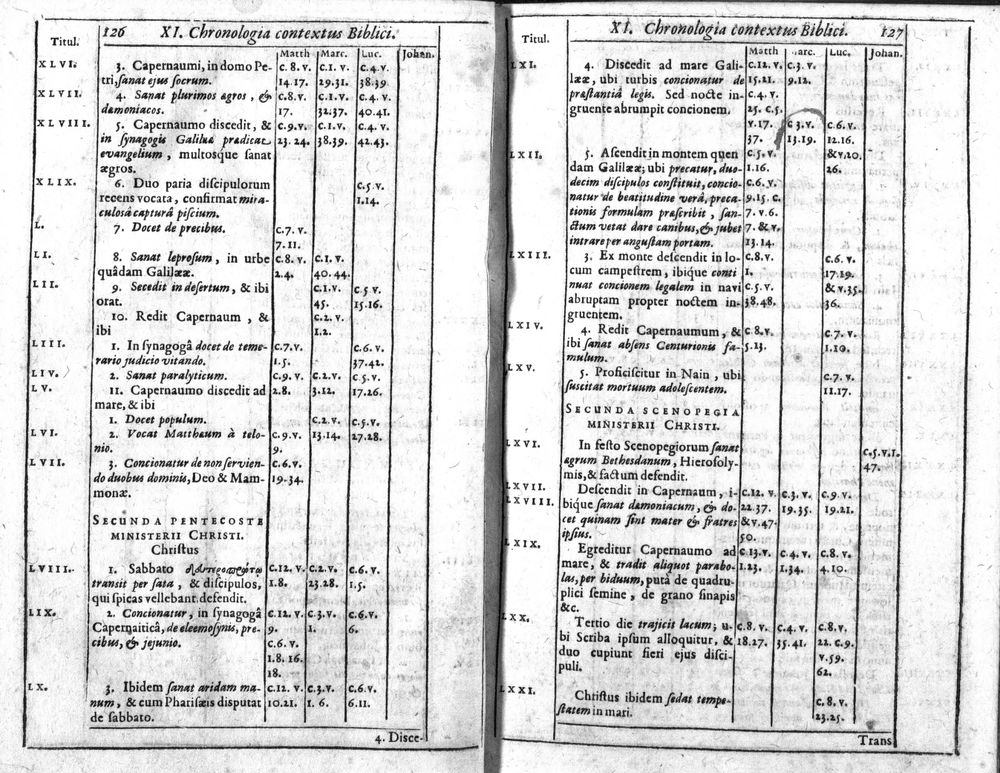 126 XI. Chronologia contextus Biblici.
Titul. Matth Marc. Luc. Johan.
XLVI. 3. Capernaumi, in domo Pe- c.8.v. c.1.v. c.4.v.
tri, sanat ejus socrum. 14.17. 29.31. 38.39
XLVII. 4. Sanat plurimos ægros, & c.8.v. c.1.v. c.4.v.
dæmoniacos. 17. 32.37. 40.41.
XLVIII. 5. Capernaumo discedit, & c.9.v. c.1.v. c.4.v.
in synagogis Galilææ prædicat 23.24. 38.39. 42.43.
evangelium, multosque sanat
ægros.
XLIX. 6. Duo paria discipulorum c.5.v.
recens vocata, confirmat mira- 1.14.
culosâ capturâ piscium.
L. 7. Docet de precibus. c.7.v.
7.11.
LI. 8. Sanat leprosum, in urbe c.8.v. c.1.v.
quâdam Galilææ. 2.4. 40.44.
LII. 9. Secedit in desertum, & ibi c.1.v. c.5.v.
orat. 45. 15.16.
10. Redit Capernaum, & c.2.v.
ibi 1.2.
LIII. 1. In synagogâ docet de teme- c.7.v. c.6.v.
rario judicio vitando. 1.5. 37.42.
LIV. 2. Sanat paralyticum. c.9.v. c.2.v. c.5.v.
LV. 11. Capernaumo discedit ad 2.8. 3.12. 17.26.
mare, & ibi
1. Docet populum. c.2.v. c.5.v.
LVI. 2. Vocat Matthæum à telo- c.9.v. 13.14. 27.28.
nio. 9.
LVII. 3. Concionatur de non servien- c.6.v.
do duobus dominis, Deo & Mam- 19-34.
monæ.
SECUNDA PENTECOSTE
MINISTERII CHRISTI.
Christus
LVIII. 1. Sabbato c.12.v. c.2.v. c.6.v.
transit per sata, & discipulos, 1.8. 23.28. 1.5.
qui spicas vellebant, defendit.
LIX. 2. Concionatur, in synagogâ c.12.v. c.3.v. c.6.v.
Capernaiticâ, de eleemosynis, pre- 9. 1. 6.
cibus, & jejunio. c.6.v.
1.8.16.
18.
LX. 3. Ibidem sanat aridam ma- c.12.v. c.3.v. c.6.v.
num, & cum Pharisæis disputat 10.21. 1.6. 6.11.
de sabbato.
4. Disce-
XI. Chronologia contextus Biblici. 127
Titul. Matth Marc. Luc. Johan.
LXI. 4. Discedit ad mare Gali- c.12.v. c.3.v.
lææ, ubi turbis concionatur de 15.21. 9.12.
præstantiâ legis. Sed nocte in- c.4.v.
gruente abrumpit concionem. 25. c.5.
v.17. c.3.v. c.6.v.
37. 13.19. 12.16.
LXII. 5. Ascendit in montem quen c.5.v. &v.20.
dam Galilææ; ubi precatur, duo- 1.16. 26.
decim discipulos constituit, concio- c.6.v.
natur de beatitudine verâ, preca- 9.15.c.
tionis formulam præscribit, san- 7.v.6.
ctum vetat dare canibus, & jubet 7.&v.
intrare per angustam portam. 13.14.
LXIII. 3. Ex monte descendit in lo- c.8.v. c.6.v.
cum campestrem, ibique conti 1. 17.19.
nuat concionem legalem in navi c.5.v. &v.35.
abruptam propter noctem in- 38.48. 36.
gruentem.
LXIV. 4. Redit Capernaumum, & c.8.v. c.7.v.
ibi sanat absens Centurionis fa- 5.13. 1.10.
mulum.
LXV. 5. Proficiscitur in Nain, ubi c.7.v.
suscitat mortuum adolescentem. 11.17.
SECUNDA SCENOPEGIA
MINISTERII CHRISTI.
LXVI. In festo Scenopegiorum sanat c.5.v.1.
ægrum Bethesdanum, Hierosoly- 47.
mis, & factum defendit.
LXVII. Descendit in Capernaum, i- c.12.v. c.3.v. c.9.v.
LXVIII. bique sanat dæmoniacum, & do- 22.37. 19.35. 19.21.
cet quinam sint mater & fratres &v.47-
ipsius. 50.
LXIX. Egreditur Capernaumo ad c.13.v. c.4.v. c.8.v.
mare, & tradit aliquot parabo- 1.23. 1.34. 4.10.
las, per biduum, putà de quadru-
plici semine, de grano sinapis
&c.
LXX. Tertio die trajicit lacum; u- c.8.v. c.4.v. c.8.v.
bi Scriba ipsum alloquitur, & 18.27. 35.41. 22.c.9.
duo cupiunt fieri ejus disci- v.59.
puli. 62.
LXXI. Christus ibidem sedat tempe- c.8.v.
statem in mari. 23.25.
Trans